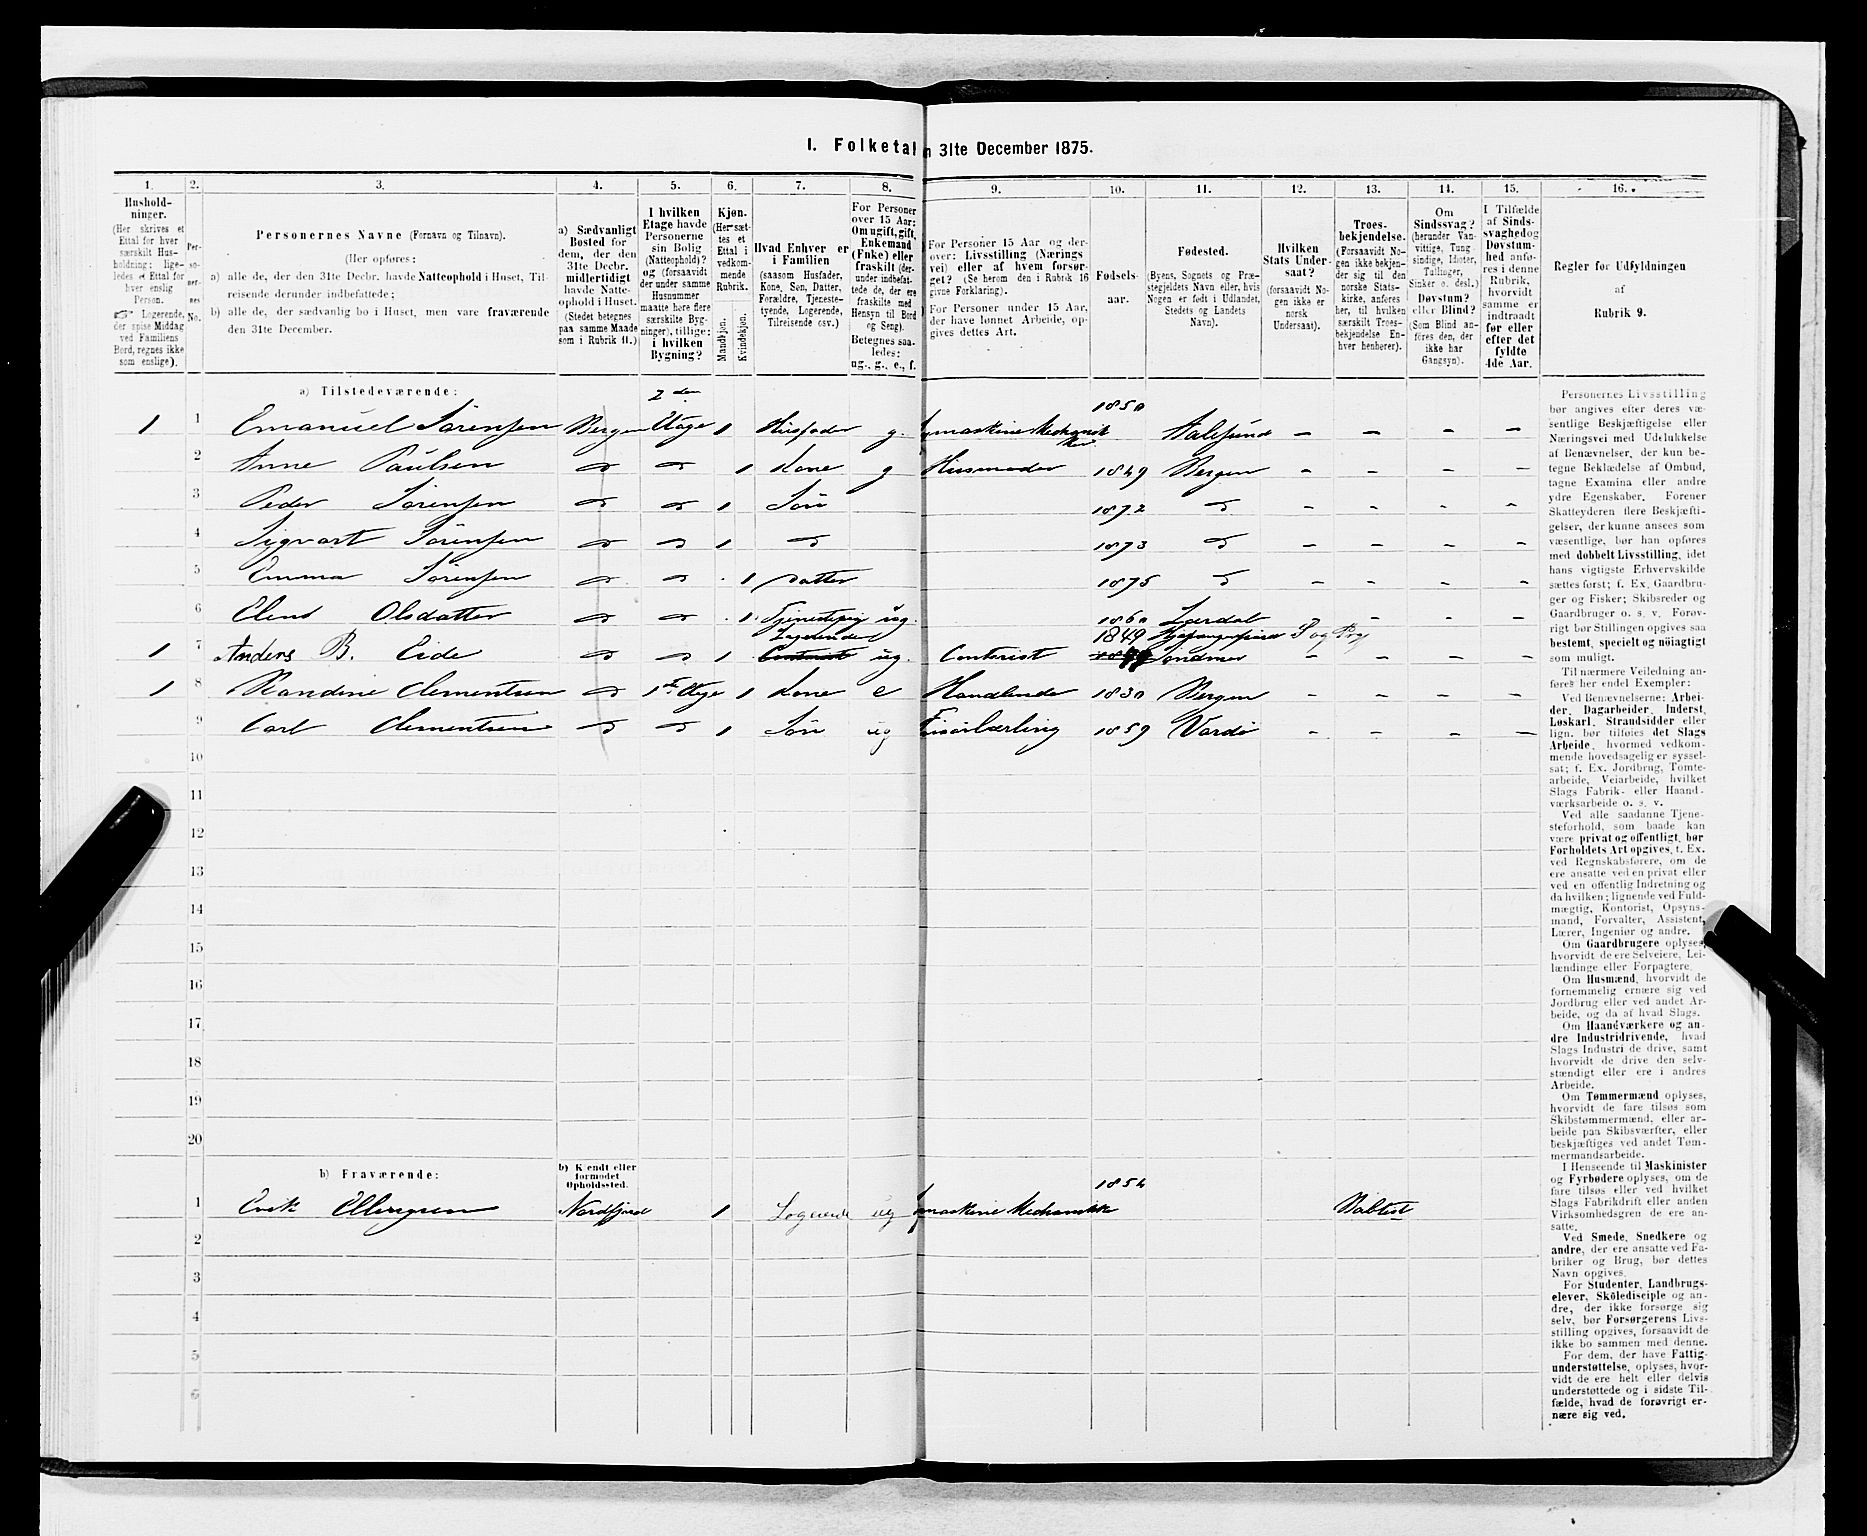 I. Folketal 31te December 1875.
1. 2. 3. 4. 5. 6. 7. 8. 9. 10. 11. 12. 13. 14. 15. 16.
Hushold-
ninger.
(Her skrives et
Ettal for hver
særskilt Hus-
holdning; lige-
ledes et Ettal for
hver enslig
Person.
☞ Logerende,
der spise Middag
ved Familiens
Bord, regnes ikke
som enslige).
Per-
so-
ner-
nes
No.
Personernes Navne (Fornavn og Tilnavn).
(Her opføres:
a) alle de, der den 31te Decbr. havde Natteophold i Huset, Til-
reisende derunder indbefattede;
b) alle de, der sædvanlig bo i Huset, men vare fraværende
den 31te December.
a) Sædvanligt
Bosted for
dem, der den
31te Decbr.
midlertidigt
havde Natte-
ophold i Huset.
(Stedet betegnes
paa samme Maade
som i Rubrik 11.)
I hvilken
Etage havde
Personerne
sin Bolig
(Natteophold)?
og (forsaavidt
der under samme
Husnummer
maatte høre flere
særskilte Byg-
ninger), tillige:
i hvilken
Bygning?
Kjøn.
(Her sæt-
tes et
Ettal i
vedkom-
mende
Rubrik.
Mandkjøn.
Kvindekjøn.
Hvad Enhver er
i Familien
(saasom Husfader,
Kone, Søn, Datter,
Forældre, Tjeneste-
tyende, Logerende,
Tilreisende osv.)
For Personer
over 15 Aar:
Om ugift, gift,
Enkemand
(Enke) eller
fraskilt (der-
under indbefat-
tede de, der ere
fraskilte med
Hensyn til Bord
og Seng).
Betegnes saa-
ledes:
ug., g., e., f.
For Personer 15 Aar og der-
over: Livsstilling (Nærings
vei) eller af hvem forsør-
get? (Se herom den i Rubrik 16
givne Forklaring).
For Personer under 15 Aar,
der have lønnet Arbeide, op-
gives dettes Art.
Fødsels-
aar.
Fødested.
(Byens, Sognets og Præ-
stegjeldets Navn eller, hvis
Nogen er født i Udlandet,
Stedets og Landets
Navn).
Hvilken
Stats Under-
saat?
(forsaavidt No-
gen ikke er
norsk
Undersaat).
Troes-
bekjendelse.
(Forsaavidt No-
gen ikke bekjen-
der sig til den
norske Stats-
kirke, anføres
her, til hvilken
særskilt Troes-
bekjendelse En-
hver henhører).
Om
Sindssvag?
(herunder Van-
vittige, Tung
sindige, Idioter,
Tullinger,
Sinker o. desl.)
Døvstum?
eller Blind?
(Som Blind an-
føres den, der
ikke har
Gangsyn).
I Tilfælde
af Sinds-
svaghed og
Døvstum-
hed anfø-
res i denne
Rubrik,
hvorvidt
samme er
indtraadt
før eller
efter det
fyldte
4de Aar.
Regler for Udfyldningen
af
Rubrik 9.
a) Tilstedeværende:
1 1 Emanuel Sørensen Bergen 2den Etage 1 Husfader g. 1850 Aalesund – – – –
2 Anne Paulsen do do 1 Kone g Husmoder 1849 Bergen – – – –
3 Peder Sørensen do do 1 Søn 1872 do – – – –
4 Sigvart Sørensen do do 1 do 1873 do – – – –
5 Emma Sørensen do do 1 Datter 1875 do – – – –
6 Olsdatter do do 1 ug. 1860 Lærdal – – –
1 7 Anders B. Eide do do 1 Logerende ug. Contorist 1849 S og Prg – – – –
1 8 Randine Clementsen do 1ste Etage 1 Kone e Handlende 1830 Bergen – – – –
9 Carl Clementsen do do 1 Søn ug 1859 Vardø – – – –
10
11
12
13
14
15
16
17
18
19
20
b) Fraværende:
b) Kjendt eller
formodet
Opholdssted.
1 Nordfjord 1 Logerende ug maskine Mekanik 1854
2
3
4
5
6
Personernes Livsstilling
bør angives efter deres væ-
sentlige Beskjæftigelse eller
Næringsvei med Udelukkelse
af Benævnelser, der kun be-
tegne Beklædelse af Ombud,
tagne Examina eller andre
ydre Egenskaber. Forener
Skatteyderen flere Beskjæfti-
gelser, der kunne ansees som
væsentlige, bør han opføres
med dobbelt Livsstilling, idet
hans vigtigste Erhvervskilde
sættes først; f. Ex. Gaardbru-
ger og Fisker; Skibsreder og
Gaardbruger o. s. v. Forøv-
rigt bør Stillingen opgives saa
bestemt, specielt og nøiagtigt
som muligt.
Til nærmere Veiledning an-
føres her endel Exempler:
Ved Benævnelserne: Arbei-
der, Dagarbeider, Inderst,
Løskarl, Strandsidder eller
lign. bør tilføies det Slags
Arbeide, hvormed vedkom-
mende hovedsagelig er syssel-
sat; f. Ex. Jordbrug, Tomte-
arbeide, Veiarbeide, hvilket
Slags Fabrik- eller Haand-
værksarbeide o. s. v.
Ved alle saadanne Tjene-
steforhold, som baade kan
være privat og offentligt, bør
Forholdets Art opgives, f. Ex.
ved Regnskabsførere, om de
ere ansatte ved en privat eller
ved en offentlig Indretning og
da hvilken; lignende ved Fuld-
mægtig, Kontorist, Opsyns-
mand, Forvalter, Assistent,
Lærer, Ingeniør og andre.
Om Gaardbrugere oplyses,
hvorvidt de ere Selveiere, Lei-
lændinge eller Forpagtere.
Om Husmænd, hvorvidt de
fornemmelig ernære sig ved
Jordbrug eller ved andet Ar-
beide, og da af hvad Slags.
Om Haandværkere og an-
dre Industridrivende, hvad
Slags Industri de drive, samt
hvorvidt de drive den selv-
stændigt eller ere i andres
Arbeide.
Om Tømmermænd oplyses,
hvorvidt de fare tilsøs som
Skibstømmermænd, eller ar-
beide paa Skibsværfter, eller
beskjæftiges ved andet Tøm-
mermandsarbeide.
I Henseende til Maskinister
og Fyrbødere oplyses, om de
fare tilsøs eller ved hvilket
Slags Fabrikdrift eller anden
Virksomhedsgren de ere an-
satte.
Ved Smede, Snedkere og
andre, der ere ansatte ved Fa-
briker og Brug, bør dettes
Navn opgives.
For Studenter, Landbrugs-
elever, Skoledisciple og an-
dre, der ikke forsørge sig
selv, bør Forsørgerens Livs-
stilling opgives, forsaavidt de
ikke bo sammen med denne.
For dem, der have Fattig-
understøttelse, oplyses, hvor-
vidt de ere helt eller delvis
understøttede og i sidste Til-
fælde, hvad de forøvrigt er-
nære sig ved.